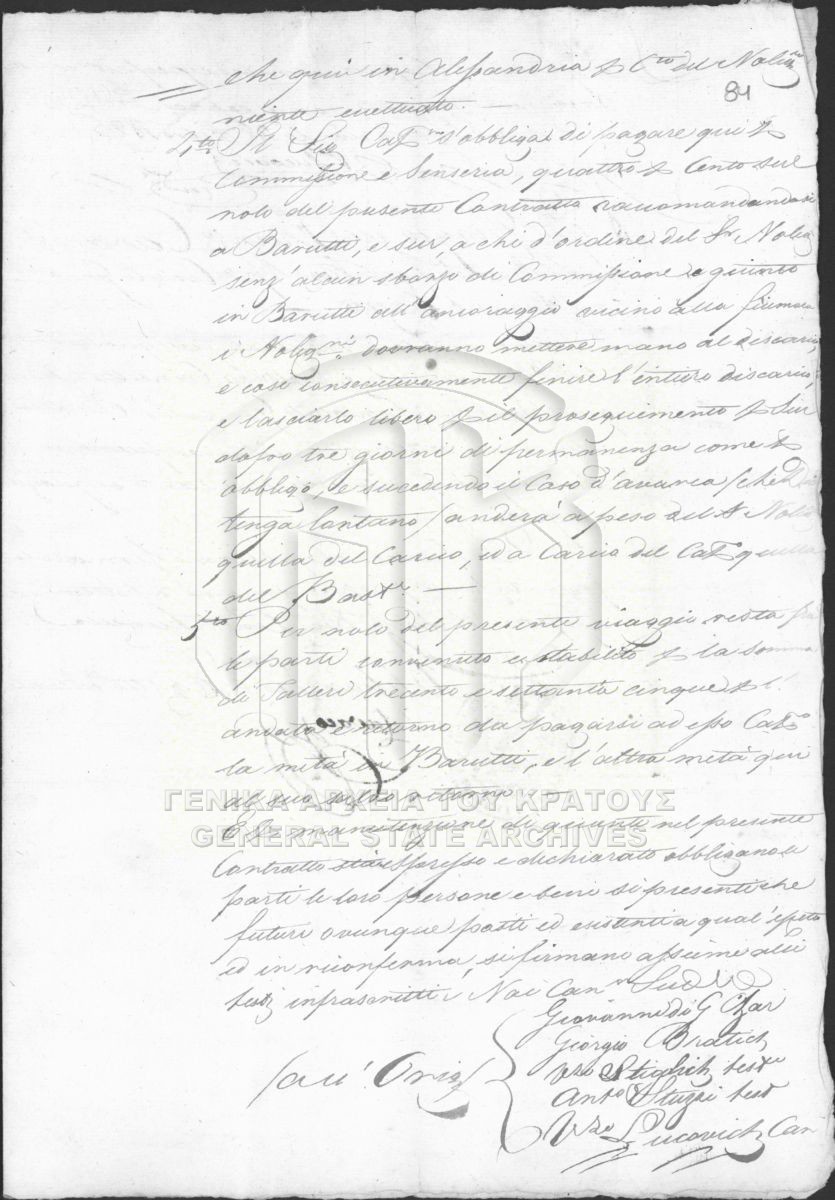 che qui in Alessandria p Cto del Nolig.re
niente eccettuato. —
84
4to Il Sig Capn s'obbliga di pagare qui p
Commissione e Senseria, quattro p Cento sul
nolo del presente Contratto raccomandandosi
a Barutti, e Sur, a chi d'ordine del Sr Nolig
senz'alcun sborzo di Commissione e giunto
in Barutti all'ancoraggio vicino alla fiumara
i Nolig.ri dovranno mettere mano al discarico,
e così consecutivamente finire l'intiero discarico,
e lasciarlo libero p il proseguimento p Sur
dopo tre giorni di permanenza come p
obbligo, e succedendo il Caso d'avaria (che Dio
tenga lontano) anderà a peso del Sr Nolig
quella del Carico, ed a Carico del Cap quella
del Bastto. —
5to Per nolo del presente viaggio resta fra
le parti convenuto e stabilito p la somma
di Talleri trecento e settanta cinque p l'
andata e ritorno da pagarsi ad esso Capo
la metà in Barutti, e l'altra metà qui
al suo salvo ritorno —
ΓΕΝΙΚΑ ΑΡΧΕΙΑ ΤΟΥ ΚΡΑΤΟΥΣ
GENERAL STATE ARCHIVES
E p manutenzione di quanto nel presente
Contratto sta espresso e dichiarato obbligano le
parti le loro persone e beni si presenti che
futuri ovunque posti ed esistenti a qual'effetto
ed in riconferma, si firmano assieme alli
testj infrascritti,
Giovanni di G
Giorgio Bratich
Vzo Stiglich testo
Anto testo
Vzo Lucovich Can